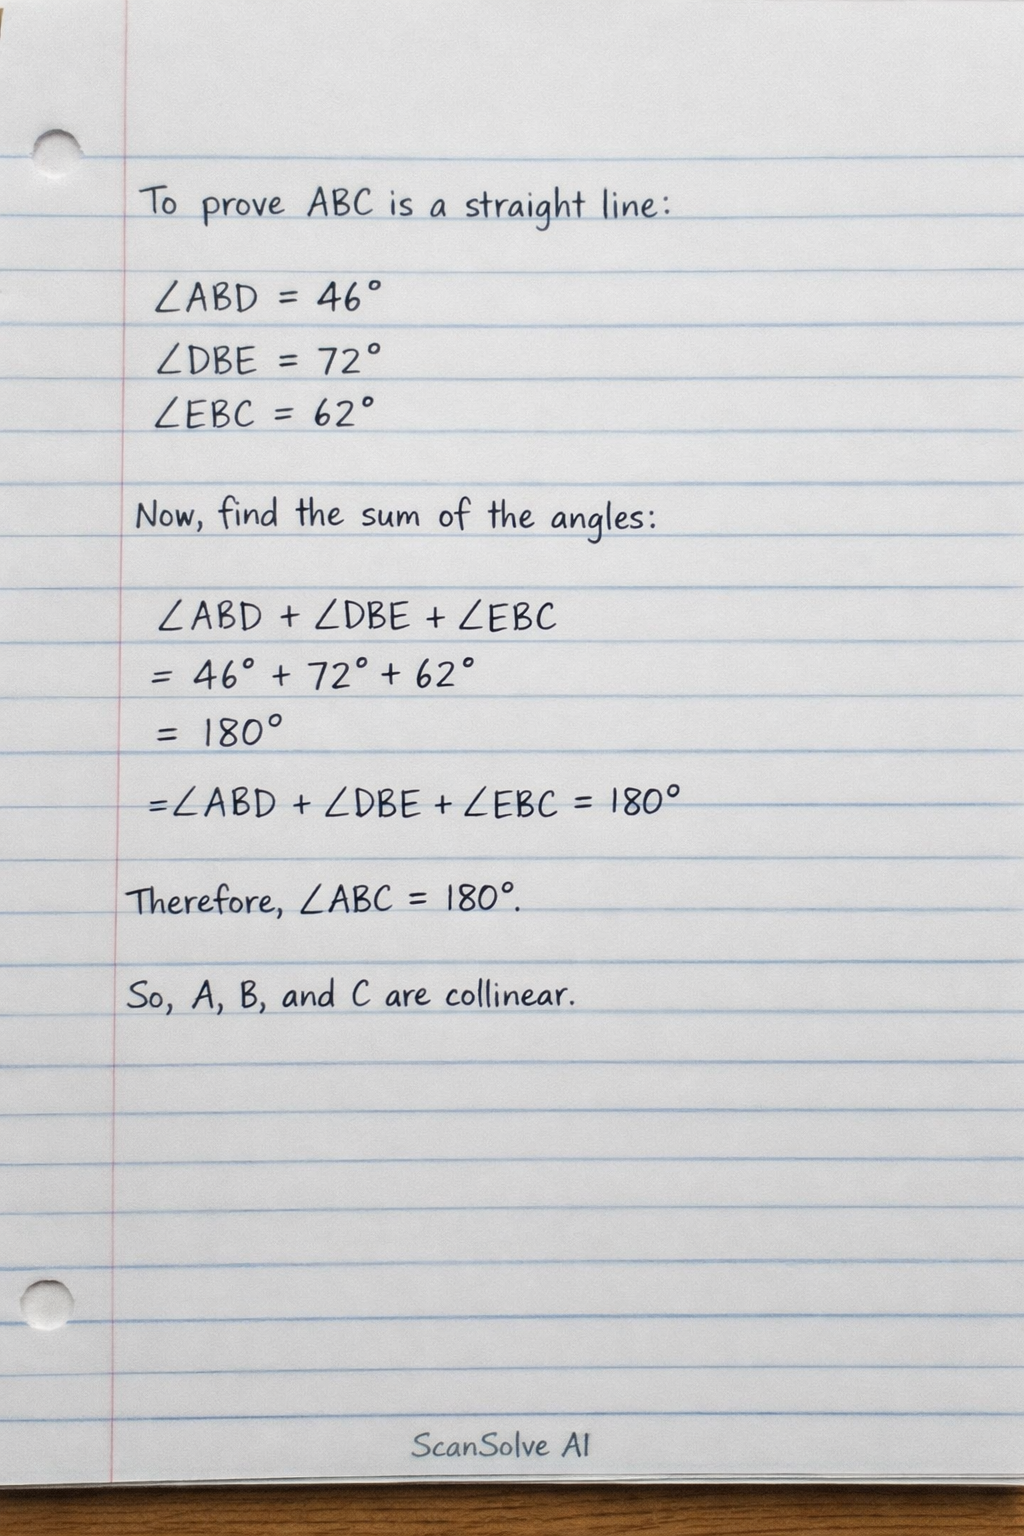 To prove ABC is a straight line:
∠ABD = 46°
∠DBE = 72°
∠EBC = 62°
Now, find the sum of the angles:
∠ABD + ∠DBE + ∠EBC
= 46° + 72° + 62°
= 180°
=∠ABD + ∠DBE + ∠EBC = 180°
Therefore, ∠ABC = 180°.
So, A, B, and C are collinear.
ScanSolve AI